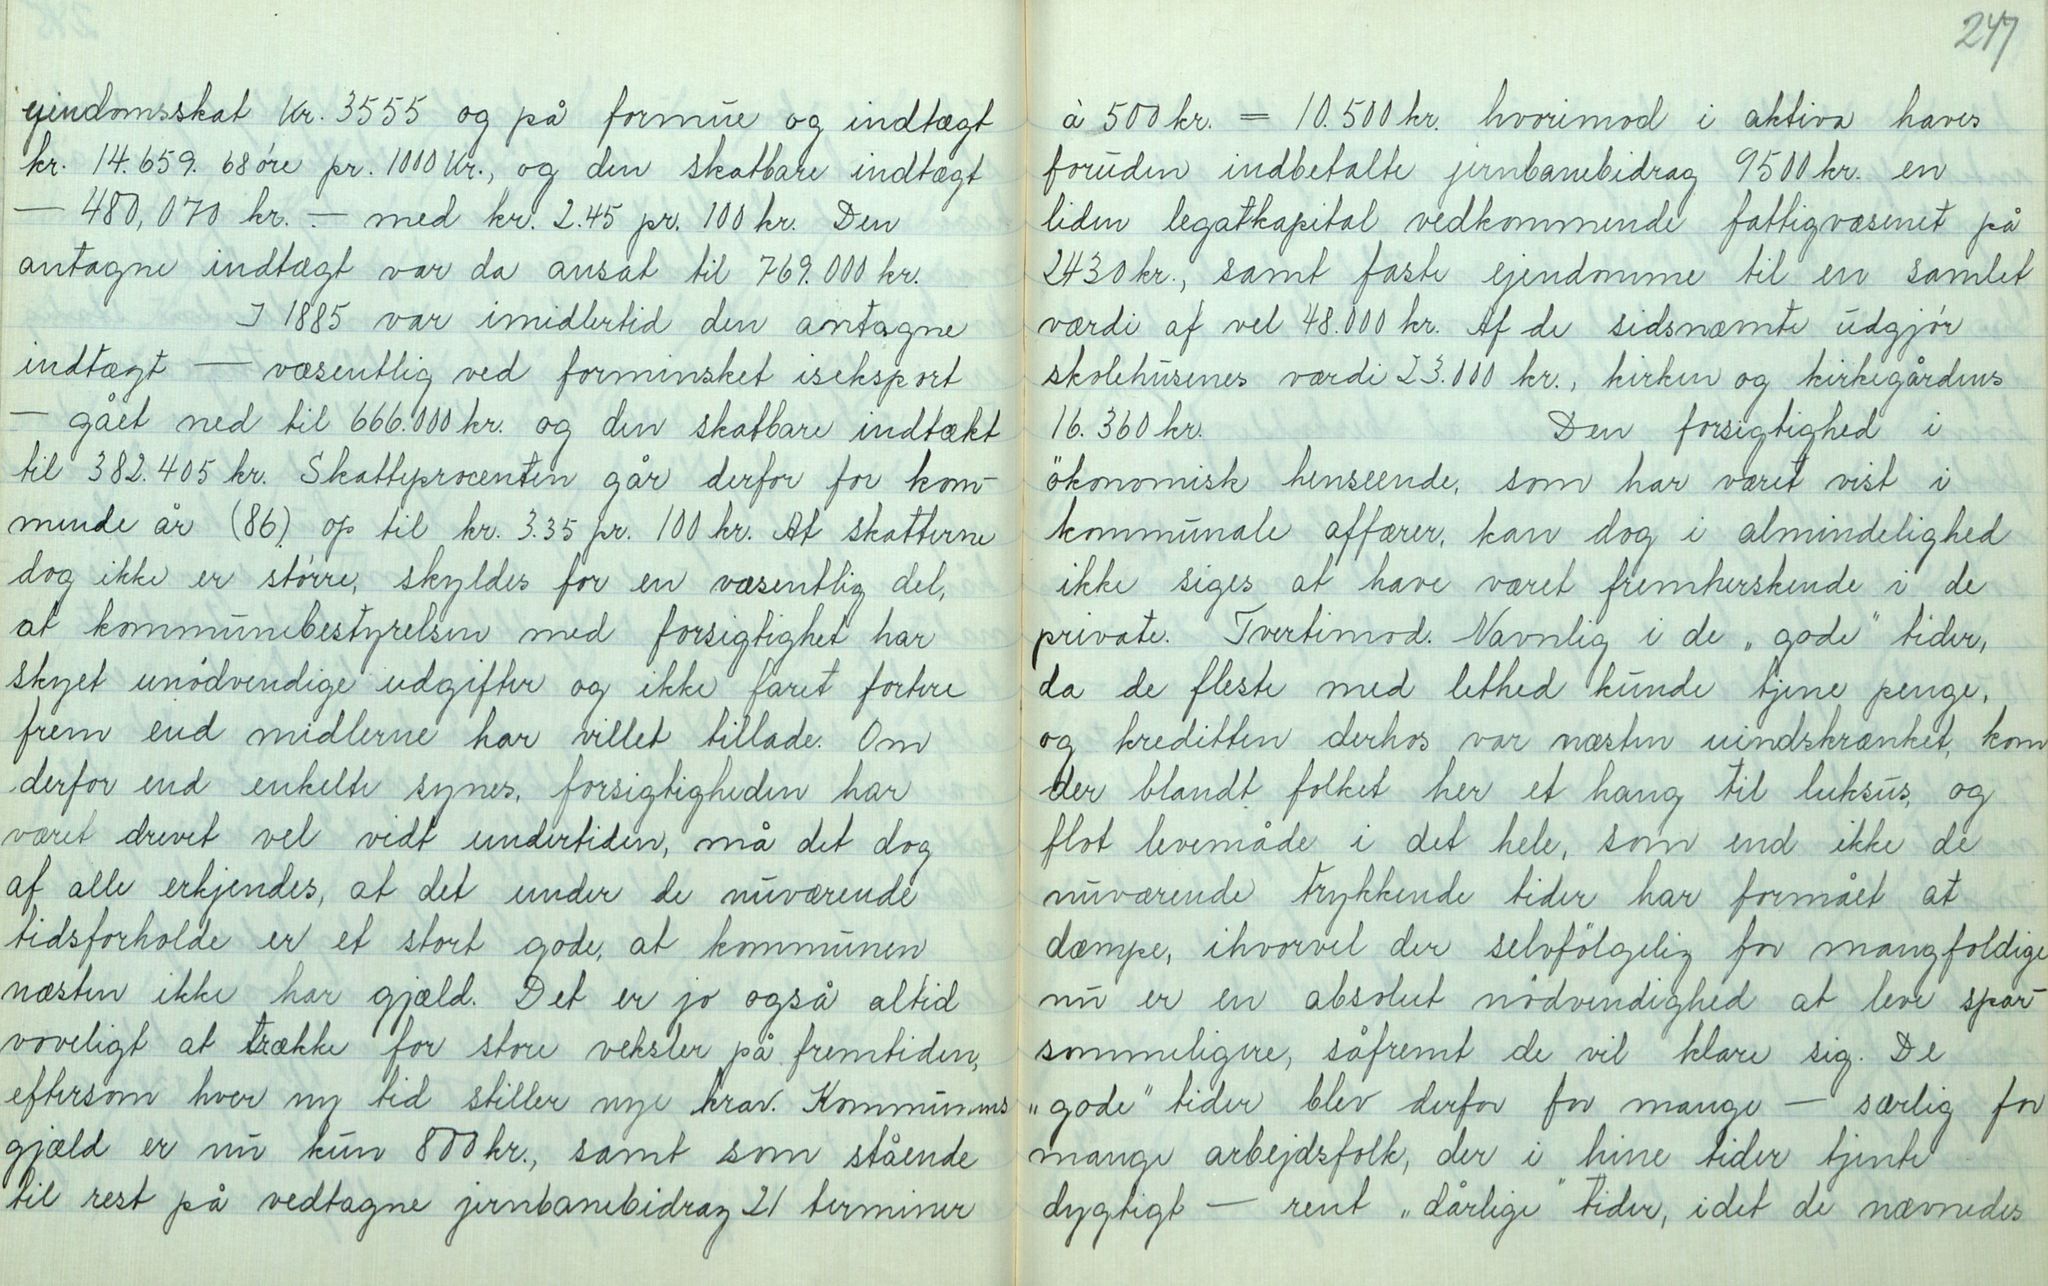 ejendomsskat Kr. 3555 og på formue og indtægt
kr. 14.659. 68 öre pr. 1000 Kr., og den skatbare indtægt
— 480,070 kr. — med kr. 2.45 pr. 100 kr. Den
antagne indtægt var da ansat til 769.000 kr.
I 1885 var imidlertid den antagne
indtægt — væsentlig ved forminsket iseksport
— gået ned til 666.000 kr. og den skatbare indtækt
til 382.405 kr. Skatteprocenten går derfor for kom-
mende år (86) op til kr. 3.35 pr. 100 kr. At skatterne
dog ikke er större, skyldes for en væsentlig del,
at kommunebestyrelsen med forsigtighet har
skyet unödvendige udgifter og ikke faret fortere
frem end midlerne har villet tillade. Om
derfor end enkelte synes, forsigtigheden har
været drevet vel vidt undertiden, må det dog
af alle erkjendes, at det under de nuværende
tidsforholde er et stort gode, at kommunen
næsten ikke har gjæld. Det er jo også altid
voveligt at trække for store veksler på fremtiden,
eftersom hver ny tid stiller nye krav. Kommunens
gjæld er nu kun 800 kr., samt som stående
til rest på vedtagne jernbanebidrag 21 terminer
247
à 500 kr. = 10.500 kr. hvorimod i aktiva haves
foruden indbetalte jernbanebidrag 9500 kr. en
liden legatkapital vedkommende fattigvæsenet på
2430 kr., samt faste ejendomme til en samlet
værdi af vel 48.000 kr. Af de sidsnæmte udgjör
skolehusenes værdi 23.000 kr., kirken og kirkegårdens
16.360 kr. Den forsigtighed i
ökonomisk henseende, som har været vist i
kommunale affærer, kan dog i almindelighed
ikke siges at have været fremherskende i de
private. Tvertimod. Navnlig i de „gode" tider,
da de fleste med lethed kunde tjene penge,
og kreditten derhos var næsten uindskrænket, kom
der blandt folket her et hang til luksus, og
flot levemåde i det hele, som end ikke de
nuværende trykkende tider har formået at
dæmpe, ihvorvel der selvfölgelig for mangfoldige
nu er en absolut nödvendighed at leve spar-
sommeligere, såfremt de vil klare sig. De
„gode" tider blev derfor for mange — særlig for
mange arbejdsfolk, der i hine tider tjente
dygtigt — rent „dårlige" tider, idet de nævnedes